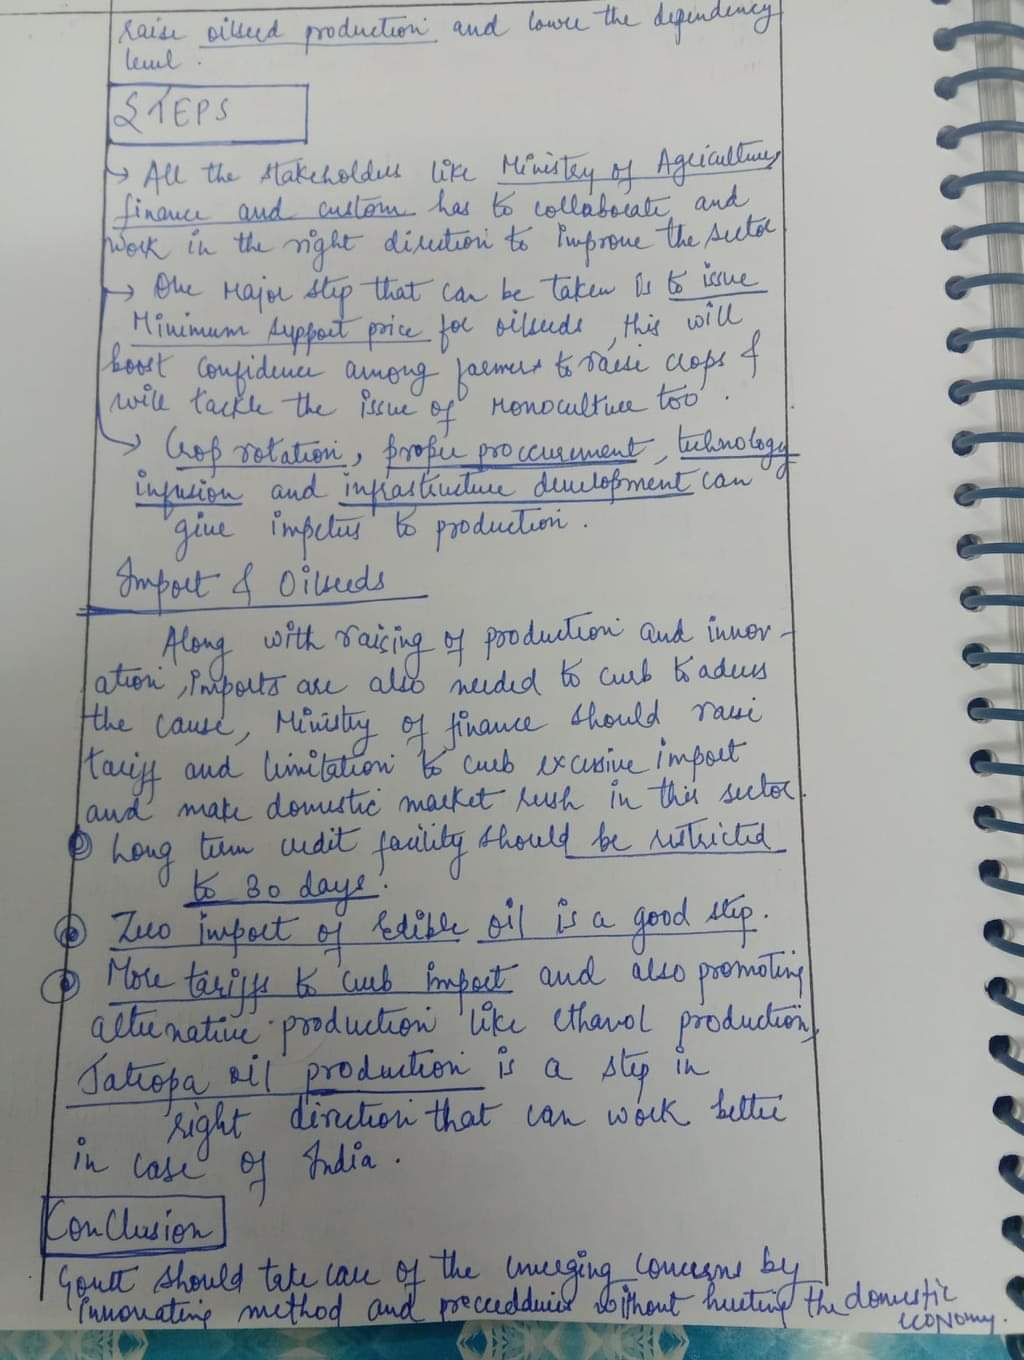 raise oilseed production and lower the dependency
level.
STEPS
→ All the stakeholders like Ministry of Agriculture,
finance and custom has to collaborate and
work in the right direction to improve the sector
→ One Major step that can be taken is to issue
Minimum support price for oilseeds, this will
boost confidence among farmers to raise crops &
will tackle the issue of Monoculture too.
→ Crop rotation, proper proccurement, technology
infusion and infrastructure development can
give impetus to production.
Import & Oilseeds
Along with raising of production and innov-
ation, imports are also needed to curb to
the cause, Ministry of finance should raise
tariff and limitation to curb excessive import
and make domestic market in this sector.
Long term credit facility should be restricted
to 30 days.
Zero import of Edible oil is a good step.
More tariffs to curb import and also promoting
alternative production like ethanol production,
Jatropa oil production is a step in
right direction that can work better
in case of India.
Conclusion
Govtt should take care of the emerging concerns by
innovating method and without hurting the domestic
economy.